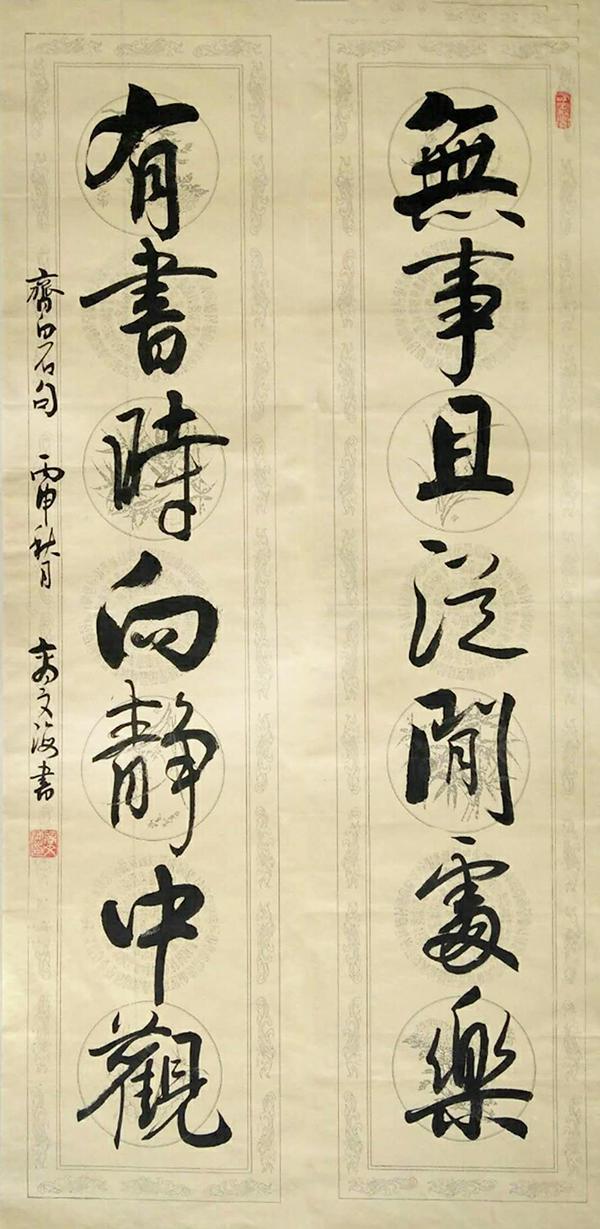 無事且從閒處樂
有書時向靜中觀
齊白石句 丙申秋月 高文海書